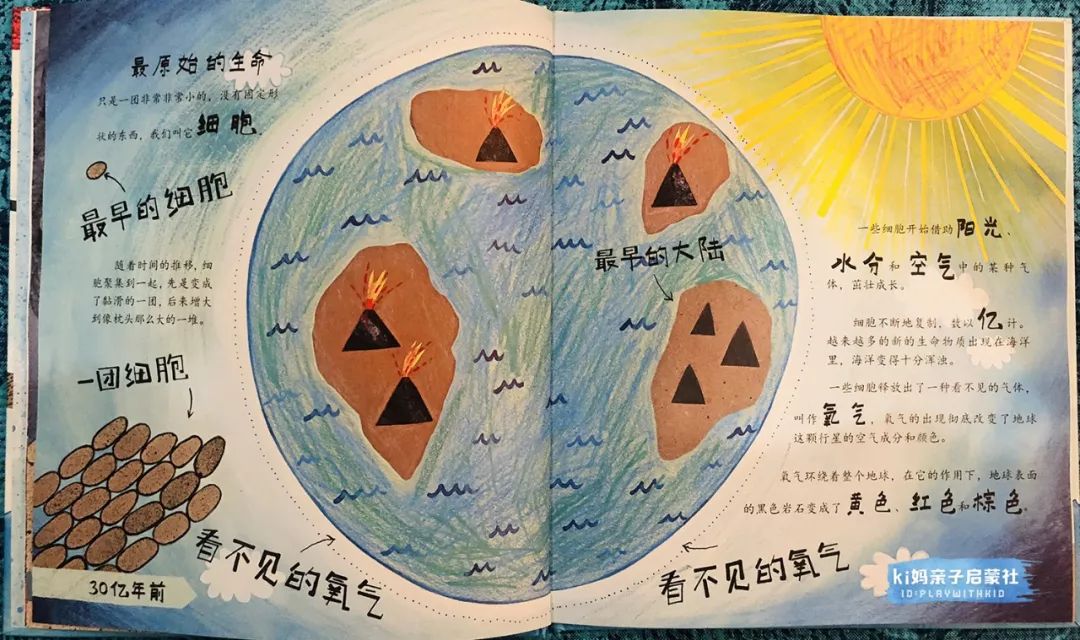 最原始的生命
只是一团非常非常小的，没有固定形
状的东西，我们叫它细胞
最早的细胞
随着时间的推移，细
胞聚集到一起，先是变成
了黏滑的一团，后来增大
到像枕头那么大的一堆。
一团细胞
30亿年前
看不见的氧气
最早的大陆
一些细胞开始借助阳光、
水分和空气中的某种气
体，茁壮成长。
细胞不断地复制，数以亿计。
越来越多的新的生命物质出现在海洋
里，海洋变得十分浑浊。
一些细胞释放出了一种看不见的气体，
叫作氧气，氧气的出现彻底改变了地球
这颗行星的空气成分和颜色。
氧气环绕着整个地球，在它的作用下，地球表面
的黑色岩石变成了黄色、红色和棕色。
看不见的氧气
ki妈亲子启蒙社
ID:PLAYWITHKID